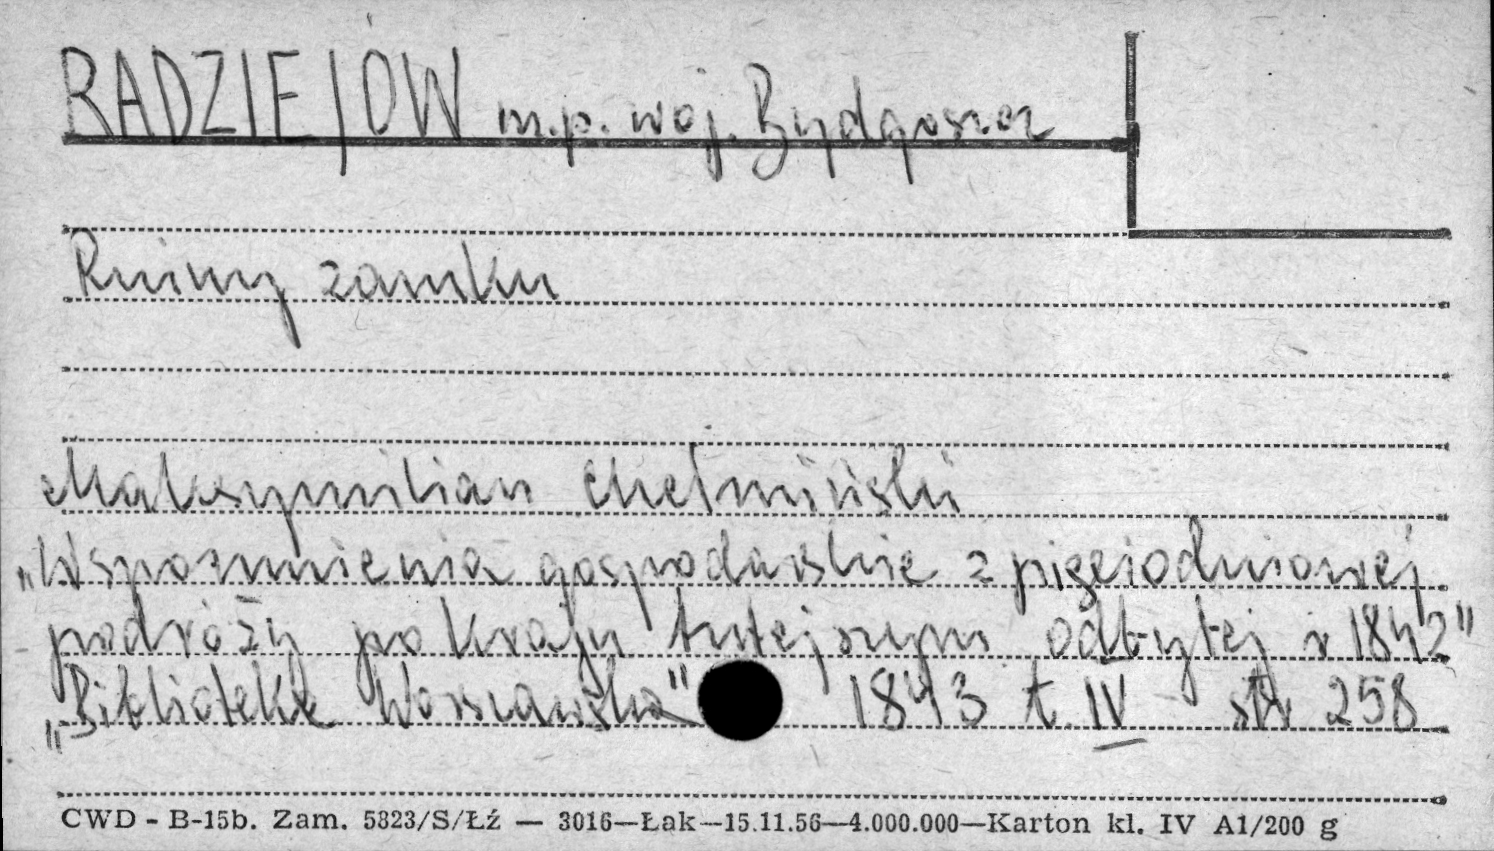 RADZIEJÓW m.p. woj. Bydgoszcz
Ruiny zamku
Maksymilian Chełmiński
„Wspomnienia gospodarskie z pięciodniowej
podróży po kraju tutejszym odbytej r 1842"
„Biblioteka Warszawska" 1843 t. IV str 258
CWD - B-15b. Zam. 5823/S/Łź — 3016—Łak—15.11.56—4.000.000—Karton kl. IV A1/200 g